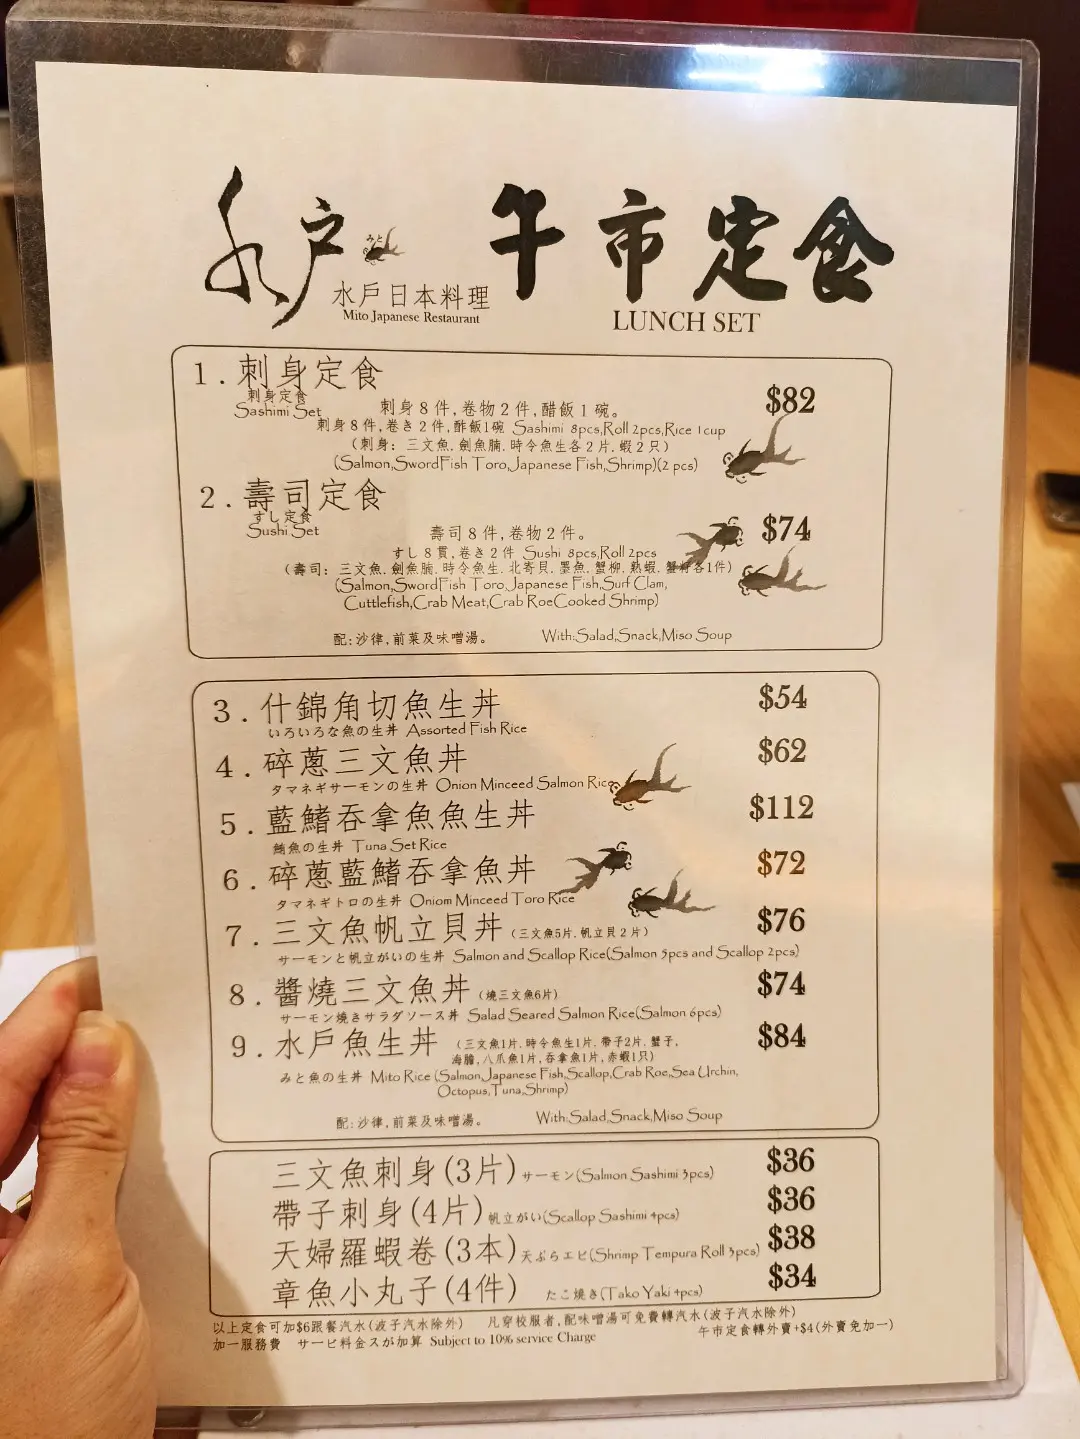 水戶
みと
水戶日本料理
Mito Japanese Restaurant
午市定食
LUNCH SET
1.刺身定食
刺身定食
Sashimi Set
$82
刺身8件,卷物2件,醋飯1碗。
刺身8件,卷き2件,酢飯1碗 Sashimi 8pcs,Roll 2pcs,Rice 1cup
(刺身: 三文魚.劍魚腩.時令魚生各2片.蝦2只)
(Salmon,SwordFish Toro,Japanese Fish,Shrimp)(2 pcs)
2.壽司定食
すし定食
Sushi Set
$74
壽司8件,卷物2件。
すし8貫,卷き2件 Sushi 8pcs,Roll 2pcs
(壽司: 三文魚.劍魚腩.時令魚生.北寄貝.墨魚.蟹柳.熟蝦.蟹籽各1件)
(Salmon,SwordFish Toro,Japanese Fish,Surf Clam,
Cuttlefish,Crab Meat,Crab RoeCooked Shrimp)
配:沙律,前菜及味噌湯。 With:Salad,Snack,Miso Soup
3.什錦角切魚生丼 $54
いろいろな魚の生丼 Assorted Fish Rice
4.碎蔥三文魚丼 $62
タマネギサーモンの生丼 Onion Minceed Salmon Rice
5.藍鰭吞拿魚魚生丼 $112
鮪魚の生丼 Tuna Set Rice
6.碎蔥藍鰭吞拿魚丼 $72
タマネギトロの生丼 Oniom Minceed Toro Rice
7.三文魚帆立貝丼(三文魚5片.帆立貝2片) $76
サーモンと帆立がいの生丼 Salmon and Scallop Rice(Salmon 5pcs and Scallop 2pcs)
8.醬燒三文魚丼(燒三文魚6片) $74
サーモン焼きサラダソース丼 Salad Seared Salmon Rice(Salmon 6pcs)
9.水戶魚生丼 (三文魚1片.時令魚生1片.帶子2片.蟹子, $84
海膽,八爪魚1片,吞拿魚1片,赤蝦1只)
みと魚の生丼 Mito Rice (Salmon,Japanese Fish,Scallop,Crab Roe,Sea Urchin,
Octopus,Tuna,Shrimp)
配:沙律,前菜及味噌湯。 With:Salad,Snack,Miso Soup
三文魚刺身(3片)サーモン(Salmon Sashimi 3pcs) $36
帶子刺身(4片)帆立がい(Scallop Sashimi 4pcs) $36
天婦羅蝦卷(3本)天ぷらエビ(Shrimp Tempura Roll 3pcs) $38
章魚小丸子(4件) たこ焼き(Tako Yaki 4pcs) $34
以上定食可加$6跟餐汽水(波子汽水除外) 凡穿校服者,配味噌湯可免費轉汽水(波子汽水除外)
加一服務費 サービ料金スが加算 Subject to 10% service Charge 午市定食轉外賣+$4(外賣免加一)